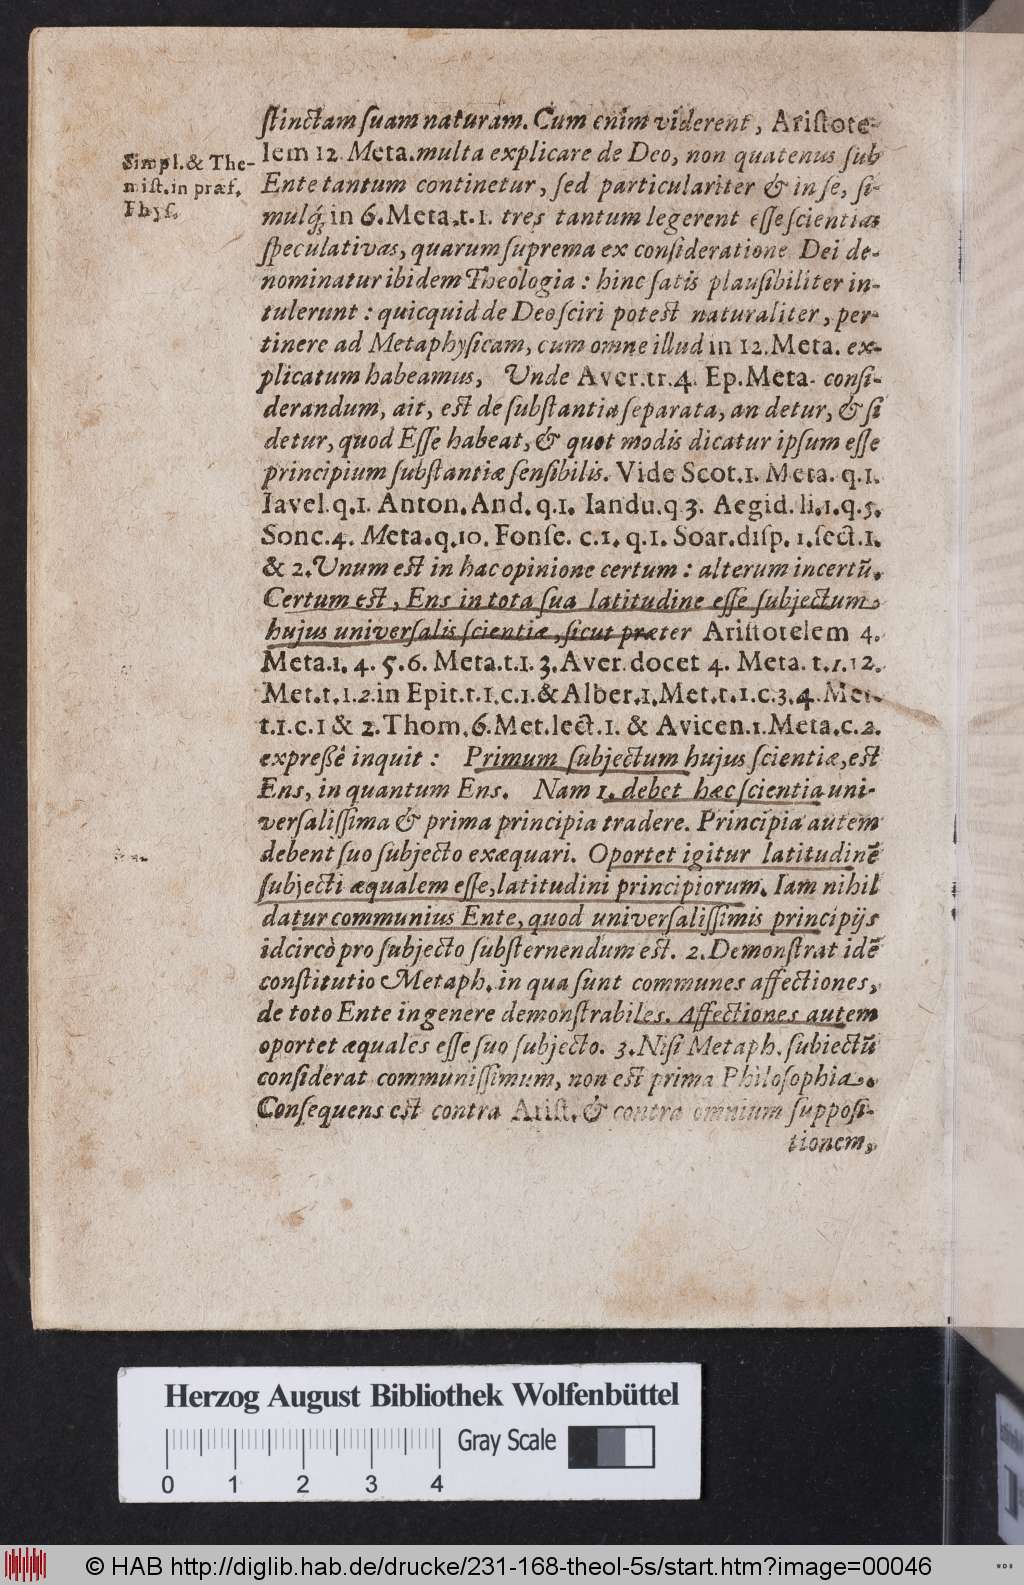 ſtinctam ſuam naturam. Cum enim viderent, Ariſtote-
Simpl. & The-
miſt. in præf.
Phyſ.
lem 12. Meta. multa explicare de Deo, non quatenus ſub
Ente tantum continetur, ſed particulariter & in ſe, ſi-
mulq́; in 6. Meta. t. 1. tres tantum legerent eſſe ſcientias
ſpeculativas, quarum ſuprema ex conſideratione Dei de-
nominatur ibidem Theologia: hinc ſatis plauſibiliter in-
tulerunt: quicquid de Deo ſciri potest naturaliter, per-
tinere ad Metaphyſicam, cum omne illud in 12. Meta. ex-
plicatum habeamus, Unde Aver. tr. 4. Ep. Meta. conſi-
derandum, ait, est de ſubſtantia ſeparata, an detur, & ſi
detur, quod Eſſe habeat, & quot modis dicatur ipſum eſſe
principium ſubſtantiæ ſenſibilis. Vide Scot. 1. Meta. q. 1.
Iavel. q. 1. Anton. And. q. 1. Iandu. q 3. Aegid. li. 1. q. 5.
Sonc. 4. Meta. q. 10. Fonſe. c. 1. q. 1. Soar. diſp. 1. ſect. 1.
& 2. Unum est in hac opinione certum: alterum incertū.
Certum est, Ens in tota ſua latitudine eſſe ſubjectum
hujus univerſalis ſcientiæ, ſicut præter Ariſtotelem 4.
Meta. 1. 4. 5. 6. Meta. t. 1. 3. Aver. docet 4. Meta. t. 1. 12.
Met. t. 1. 2. in Epit. t. 1. c. 1. & Alber. 1. Met. t. 1. c. 3. 4. Met.
t. 1. c. 1 & 2. Thom. 6. Met. lect. 1. & Avicen. 1. Meta. c. 2.
expreßè inquit: Primum ſubjectum hujus ſcientiæ, est
Ens, in quantum Ens. Nam 1. debet hæc ſcientia uni-
verſaliſſima & prima principia tradere. Principia autem
debent ſuo ſubjecto exæquari. Oportet igitur latitudinē
ſubjecti æqualem eſſe, latitudini principiorum. Iam nihil
datur communius Ente, quod univerſaliſſimis principijs
idcircò pro ſubjecto ſubſternendum est. 2. Demonſtrat idē
conſtitutio Metaph. in qua ſunt communes affectiones,
de toto Ente in genere demonſtrabiles. Affectiones autem
oportet æquales eſſe ſuo ſubjecto. 3. Niſi Metaph. ſubiectū
conſiderat communiſſimum, non est prima Philoſophia.
Conſequens est contra Ariſt. & contra omnium ſuppoſi-
tionem,
Herzog August Bibliothek Wolfenbüttel
Gray Scale
0 1 2 3 4
© HAB http://diglib.hab.de/drucke/231-168-theol-5s/start.htm?image=00046